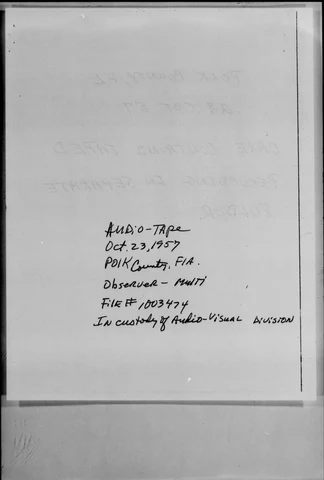 Audio-Tape
Oct. 23, 1957
Polk County, Fla.
Observer - Multi
File # 1003474
In custody of Audio-Visual Division